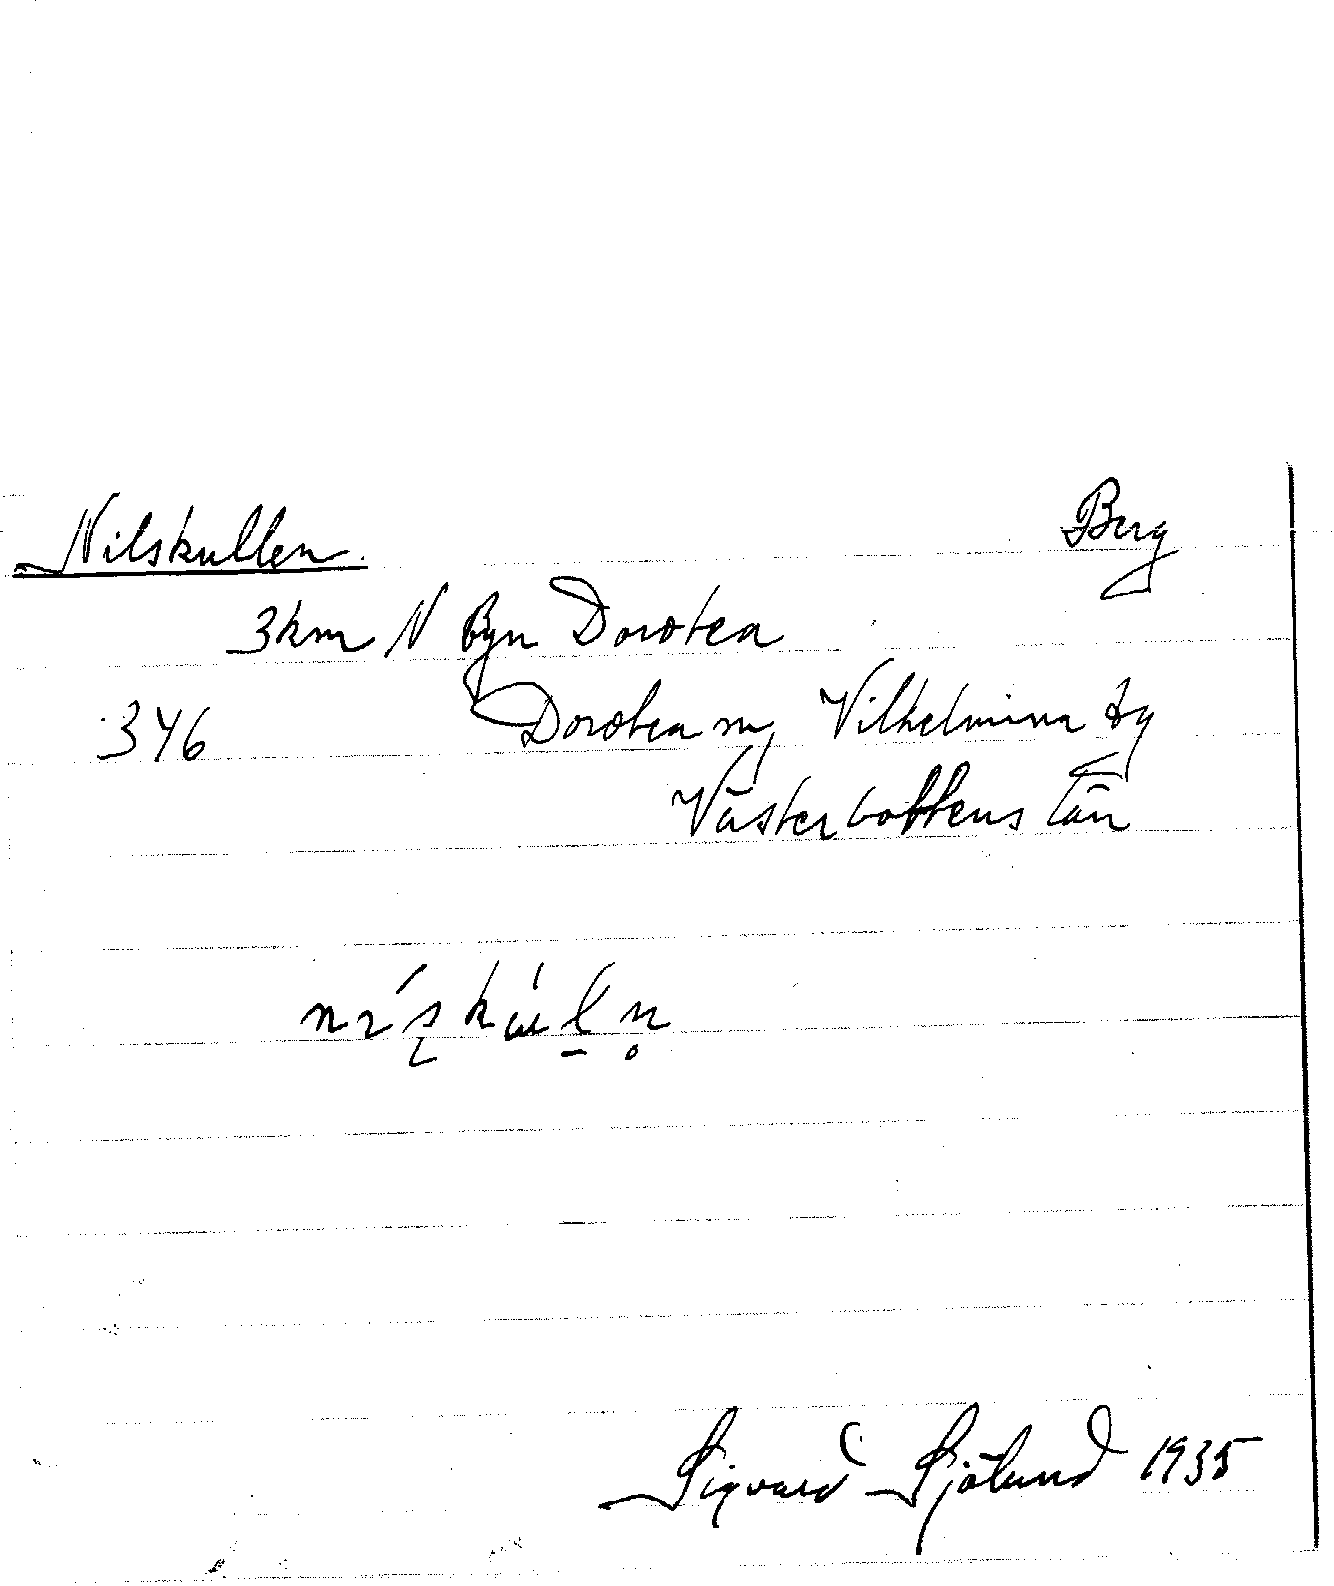 Nilskullen. Berg
3km N Byn Dorotea
346 Dorotea sn, Vilhelmina tg
Västerbottens län
Sigvard Sjölund 1935